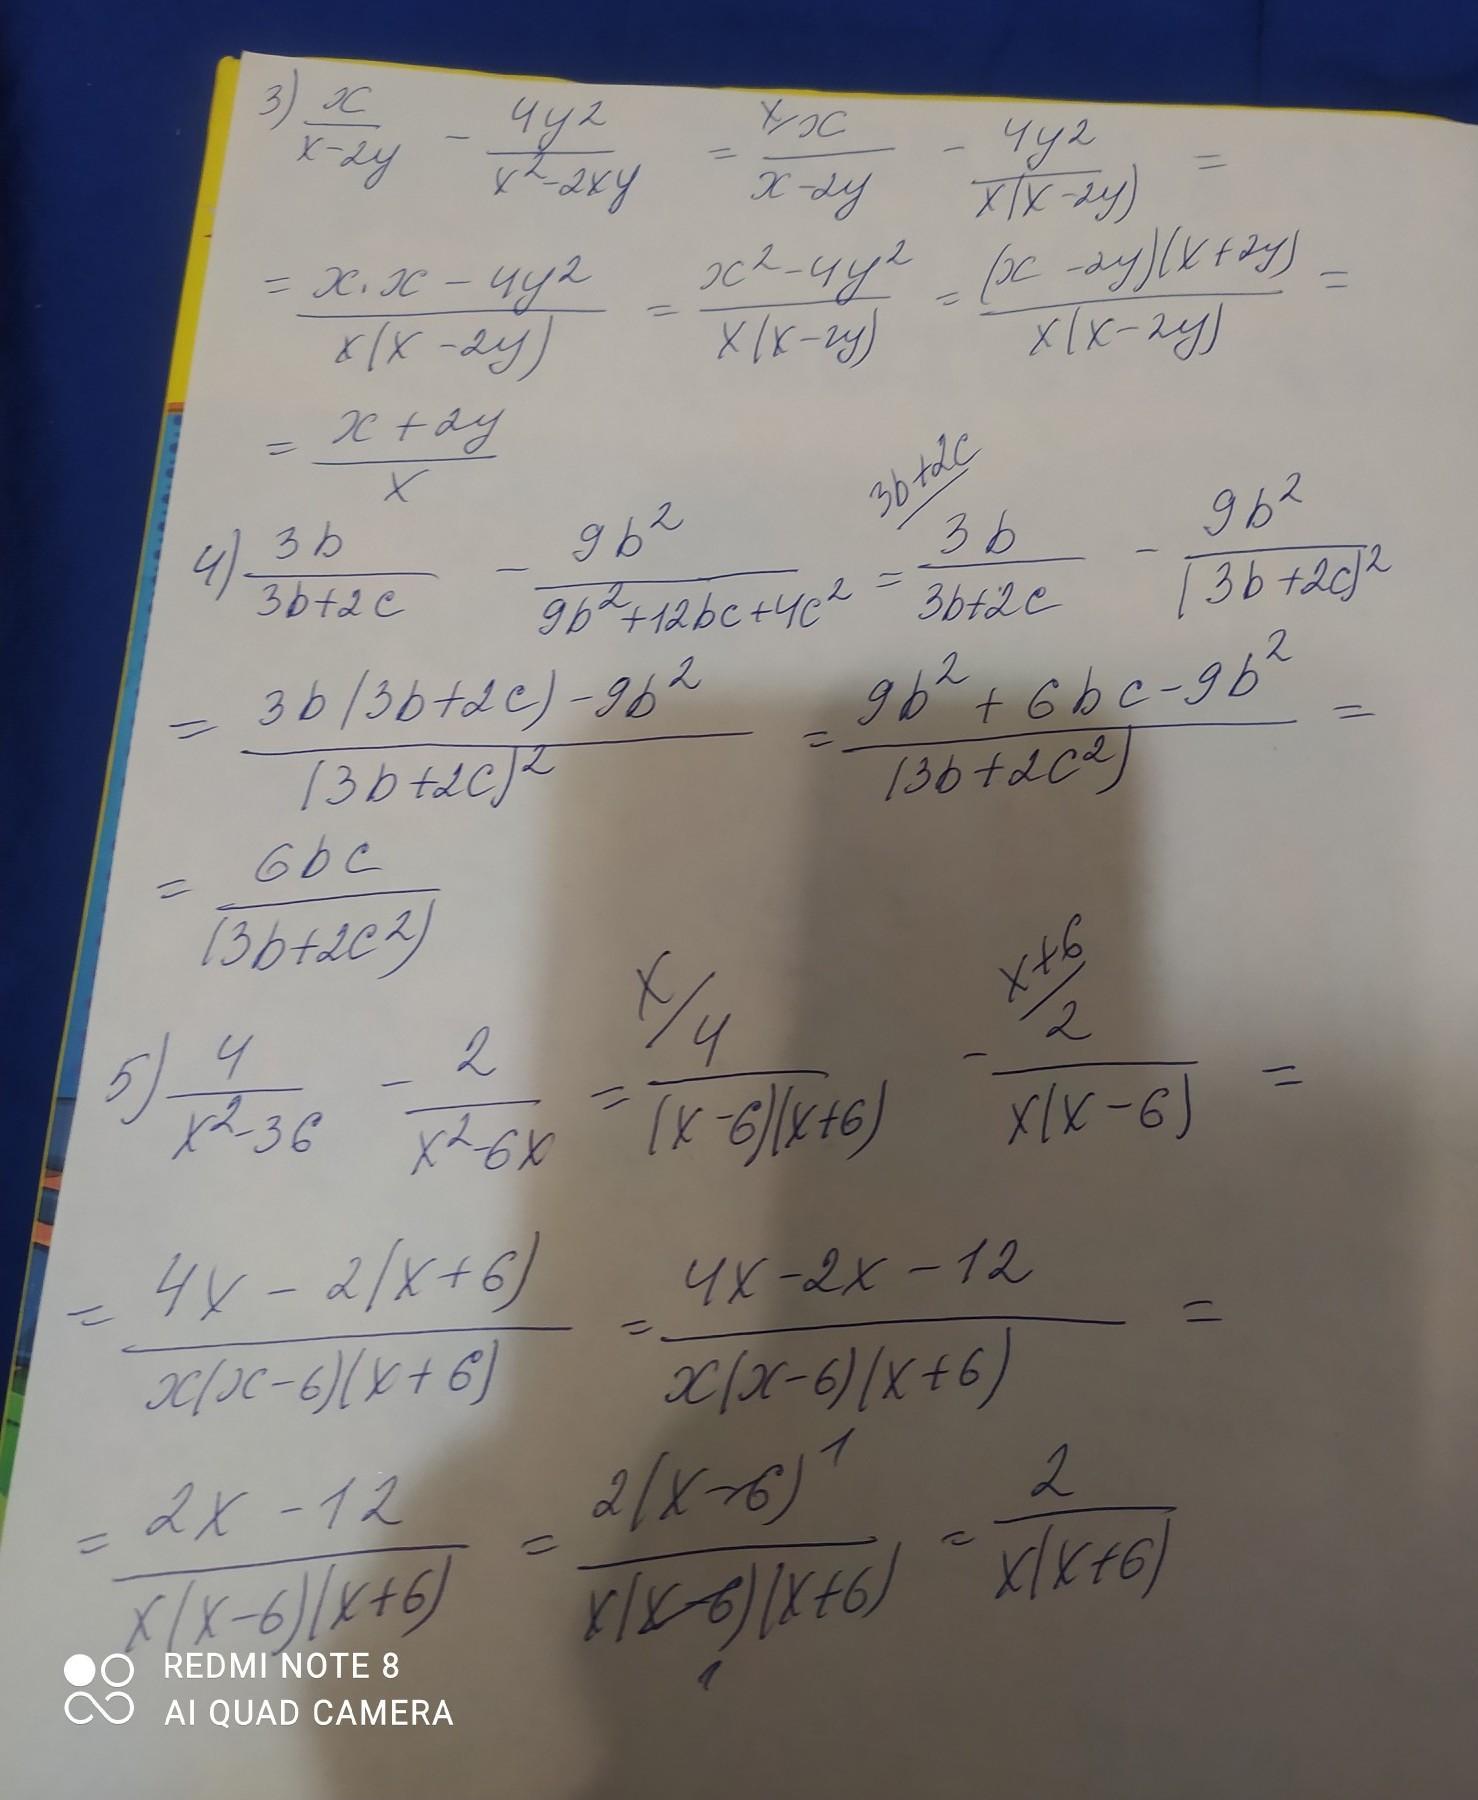 3) x/(x-2y) - 4y²/(x²-2xy) = x/ x/(x-2y) - 4y²/(x(x-2y)) =
= (x·x - 4y²)/(x(x-2y)) = (x²-4y²)/(x(x-2y)) = (x-2y)(x+2y)/(x(x-2y)) =
= (x+2y)/x
4) 3b/(3b+2c) - 9b²/(9b²+12bc+4c²) = 3b+2c/ 3b/(3b+2c) - 9b²/(3b+2c)²
= (3b(3b+2c)-9b²)/(3b+2c)² = (9b²+6bc-9b²)/(3b+2c²) =
= 6bc/(3b+2c²)
5) 4/(x²-36) - 2/(x²-6x) = x/ 4/((x-6)(x+6)) - x+6/ 2/(x(x-6)) =
= (4x-2(x+6))/(x(x-6)(x+6)) = (4x-2x-12)/(x(x-6)(x+6)) =
= (2x-12)/(x(x-6)(x+6)) = 2(x-6)¹/(x(x-6)₁(x+6)) = 2/(x(x+6))
REDMI NOTE 8
AI QUAD CAMERA